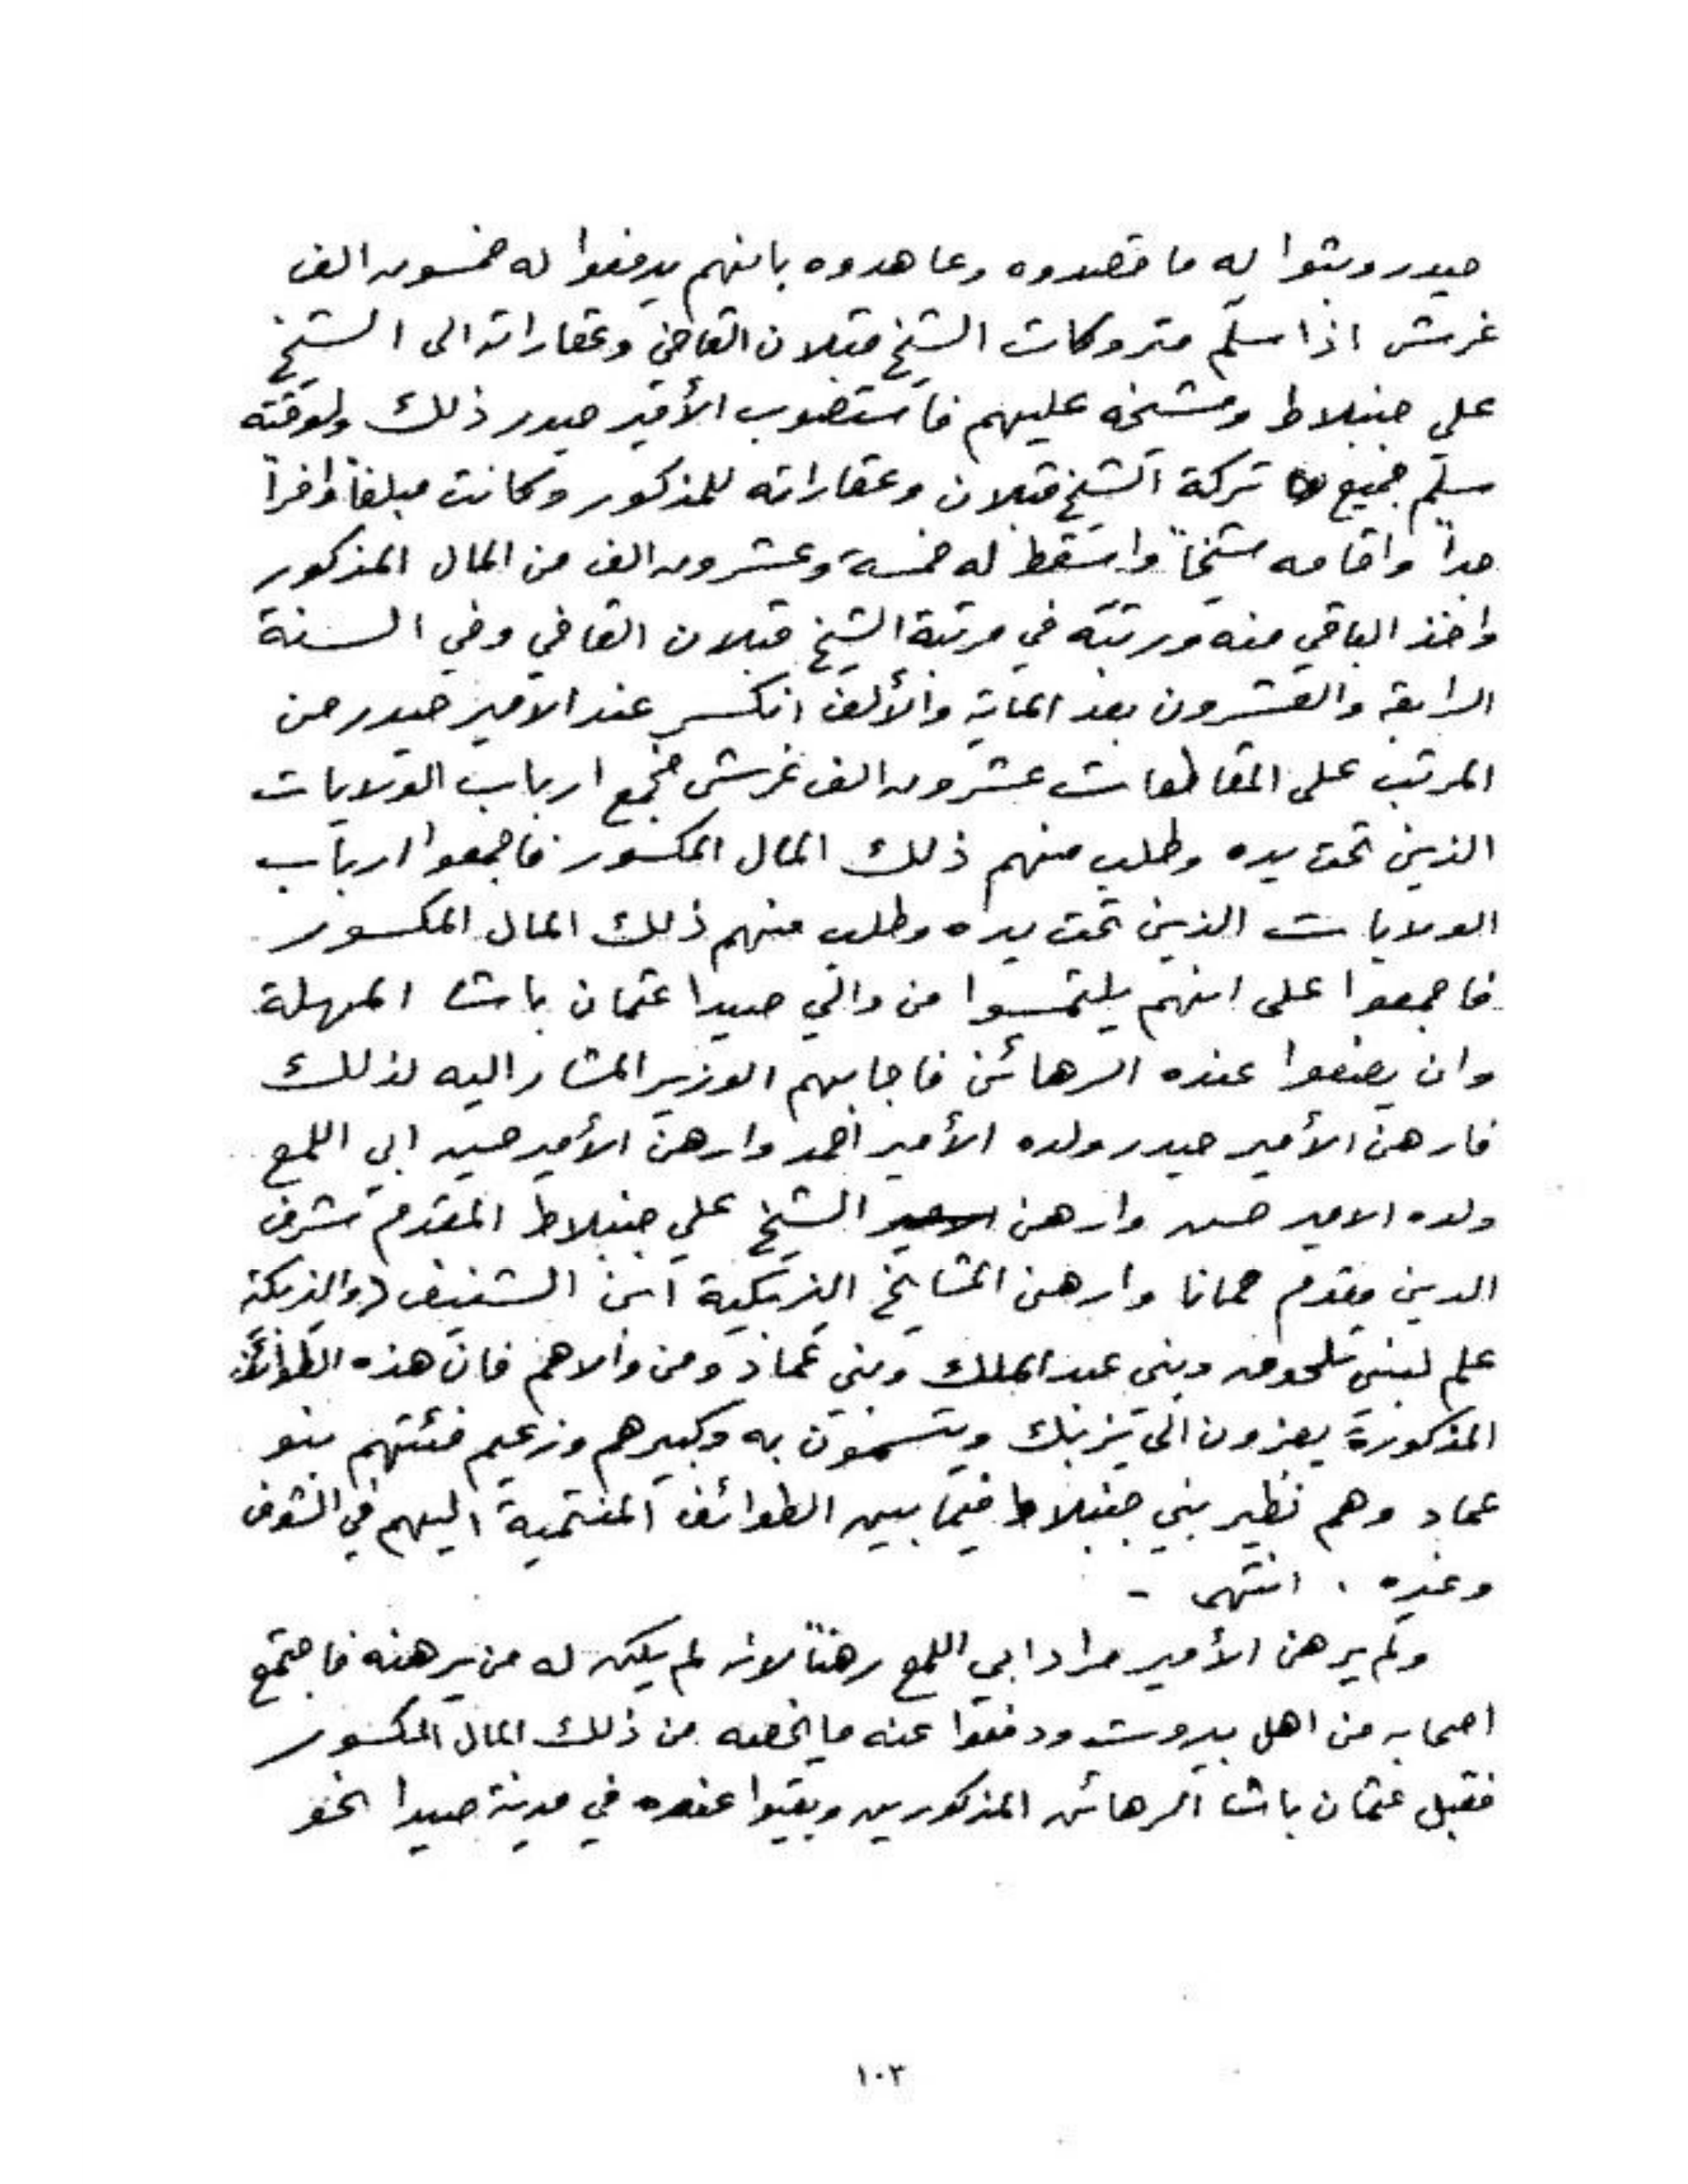 حيدر وبثوا له ما قصدوه وعاهدوه بانهم يدفعوا له خمسون الف
غرش اذا سلّم متروكات الشيخ قبلان القاضي وعقاراته الى الشيخ
علي جنبلاط ومشيخه عليهم فاستصوب الأمير حيدر ذلك ولوقته
سلّم جميع تركة الشيخ قبلان وعقاراته للمذكور وكانت مبلغاً وافراً
جداً واقامه شيخاً واسقط له خمسة وعشرون الف من المال المذكور
واخذ الباقي منه ورتبه في مرتبة الشيخ قبلان القاضي وفي السنة
الرابعة والعشرون بعد الماية والألف انكسر عند الامير حيدر من
المرتب على المقاطعات عشرون الف غرش فجمع ارباب الولايات
الذين تحت يده وطلب منهم ذلك المال المكسور فاجمعوا ارباب
الولايات الذين تحت يده وطلب منهم ذلك المال المكسور
فاجمعوا على انهم يلتمسوا من والي صيدا عثمان باشا المهلة
وان يضعوا عنده الرهائن فاجابهم الوزير المشار اليه لذلك
فارهن الأمير حيدر ولده الأمير احمد وارهن الأمير حسين ابي اللمع
ولده الامير حسن وارهن الشيخ علي جنبلاط المقدم شرف
الدين مقدم حمانا وارهن المشايخ اليزبكية ابن الشنيف (واليزبكية
علم لبني تلحوق وبني عبد الملك وبني عماد ومن والاهم فان هذه الطوائف
المذكورة يعزون الى يزبك ويتسمون به وكبيرهم وزعيم فئتهم بنو
عماد وهم نظير بني جنبلاط فيما بين الطوائف المنتمية اليهم في الشوف
وغيره . انتهى -
ولم يرهن الأمير مراد ابي اللمع رهناً لانه لم يكن له من يرهنه فاجتمع
اصحابه من اهل بيروت ودفعوا عنه ما يخصه من ذلك المال المكسور
فقبل عثمان باشا الرهائن المذكورين وبقيوا عنده في مدينة صيدا نحو
١٠٣